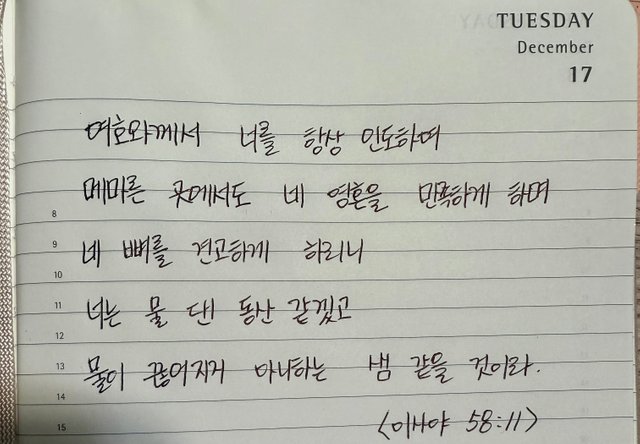 TUESDAY
December
17
여호와께서 너를 항상 인도하며
메마른 곳에서도 네 영혼을 만족하게 하며
8
네 뼈를 견고하게 하리니
9
10
너는 물 댄 동산 같겠고
11
12
물이 끊어지지 아니하는 샘 같을 것이라.
13
14
<이사야 58:11>
15